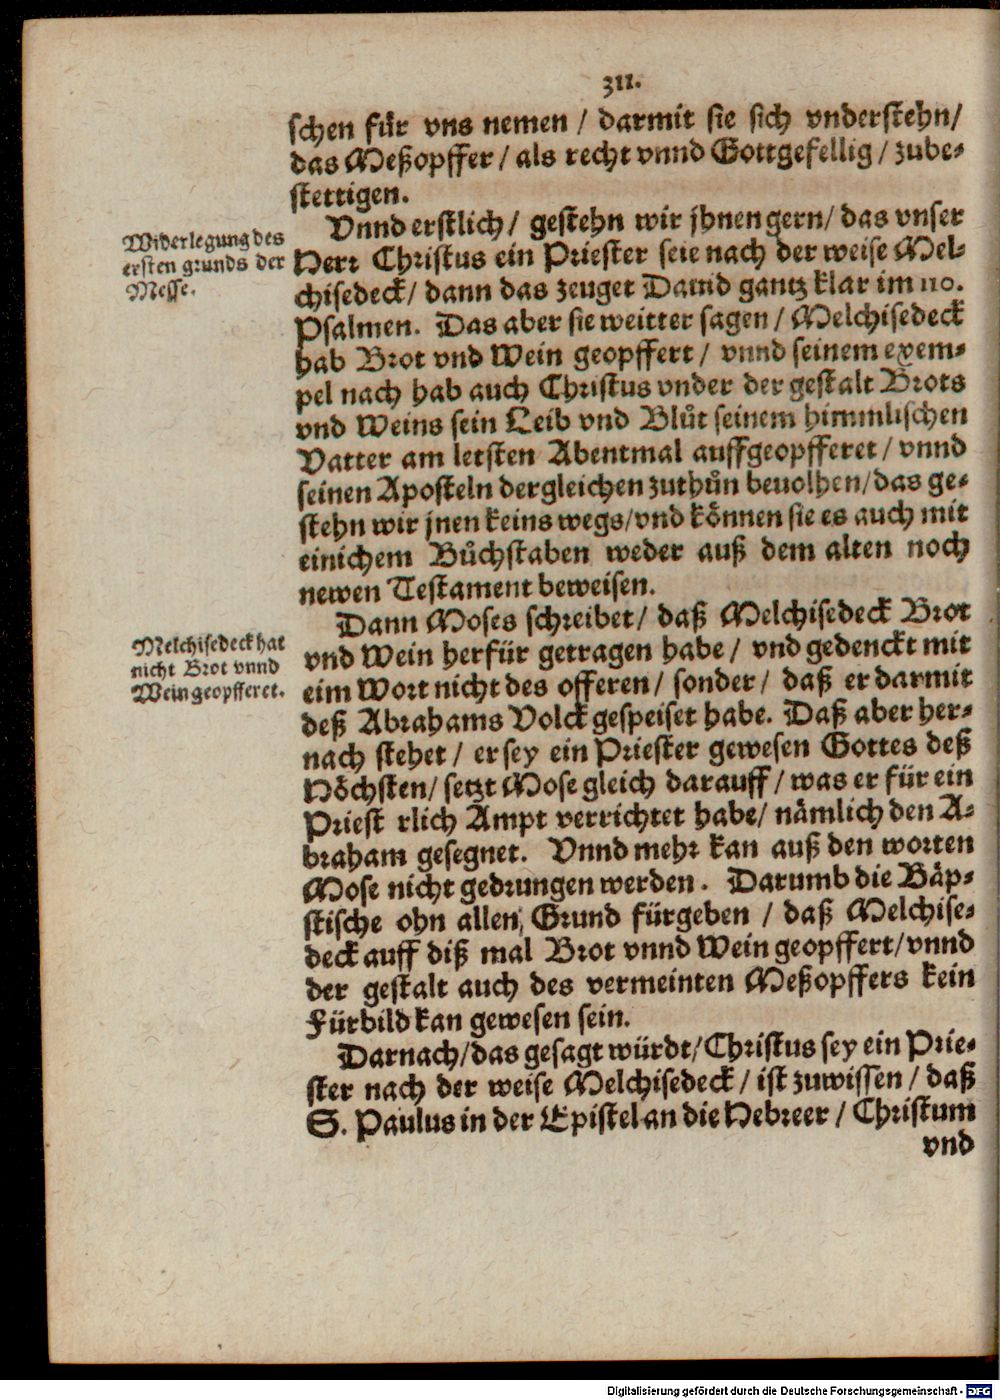 311.
schen für vns nemen / darmit sie sich vnderstehn/
das Meßopffer / als recht vnnd Gottgefellig / zube-
stettigen.
Vnnd erstlich / gestehn wir jhnen gern/ das vnser
Herr Christus ein Priester seie nach der weise Mel-
chisedeck/ dann das zeuget Dauid gantz klar im 110.
Psalmen. Das aber sie weitter sagen / Melchisedeck
hab Brot vnd Wein geopffert / vnnd seinem exem-
pel nach hab auch Christus vnder der gestalt Brots
vnd Weins sein Leib vnd Blůt seinem himmlischen
Vatter am letsten Abentmal auffgeopfferet / vnnd
seinen Aposteln dergleichen zuthůn beuolhen/das ge-
stehn wir jnen keins wegs/vnd können sie es auch mit
einichem Bůchstaben weder auß dem alten noch
newen Testament beweisen.
Widerlegung des
ersten grunds der
Messe.
Dann Moses schreibet/ daß Melchisedeck Brot
vnd Wein herfür getragen habe / vnd gedenckt mit
eim Wort nicht des offeren/ sonder/ daß er darmit
deß Abrahams Volck gespeiset habe. Daß aber her-
nach stehet / er sey ein Priester gewesen Gottes deß
Höchsten/ setzt Mose gleich darauff / was er für ein
Priest rlich Ampt verrichtet habe/ nämlich den A-
braham gesegnet. Vnnd mehr kan auß den worten
Mose nicht gedrungen werden. Darumb die Bäp-
stische ohn allen Grund fürgeben / daß Melchise-
deck auff diß mal Brot vnnd Wein geopffert/vnnd
der gestalt auch des vermeinten Meßopffers kein
Fürbild kan gewesen sein.
Melchisedeck hat
nicht Brot vnnd
Wein geopfferet.
Darnach/das gesagt würdt/Christus sey ein Prie-
ster nach der weise Melchisedeck / ist zuwissen / daß
S. Paulus in der Epistel an die Hebreer / Christum
vnd
Digitalisierung gefördert durch die Deutsche Forschungsgemeinschaft - DFG